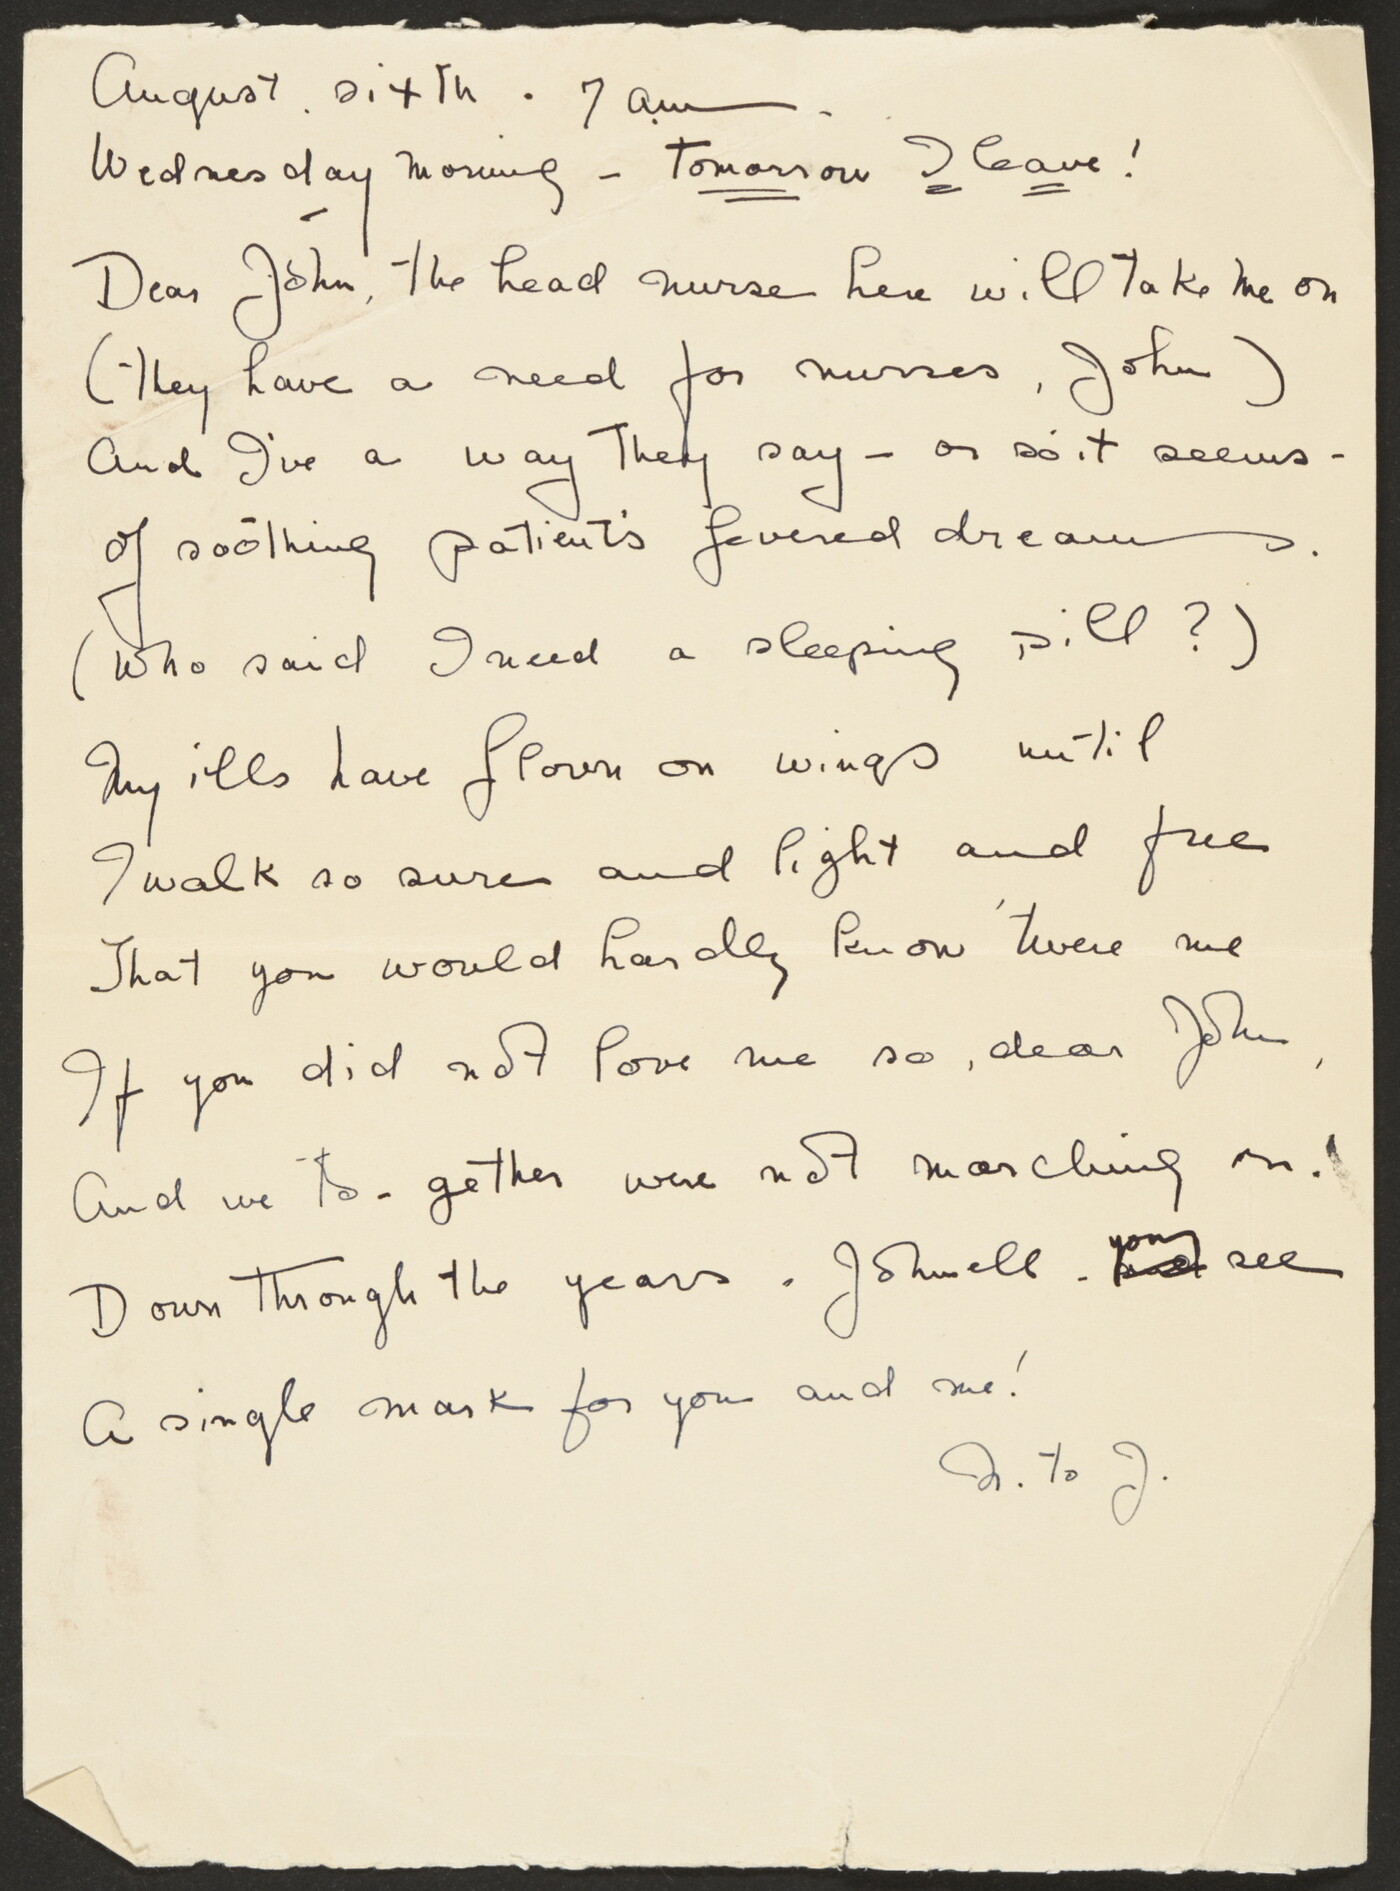 August. sixth. 7 am.
Wednesday morning - tomorrow I leave!
Dear John, the head nurse here will take me on
(they have a need for nurses, John)
And I've a way they say - or so it seems -
of soothing patient's fevered dreams.
(Who said I need a sleeping pill?)
My ills have flown on wings until
I walk so sure and light and free
That you would hardly know 'twere me
If you did not love me so, dear John,
And we to-gether were not marching on!
Down through the years. Johnell. you see
A single mark for you and me!
N. to J.